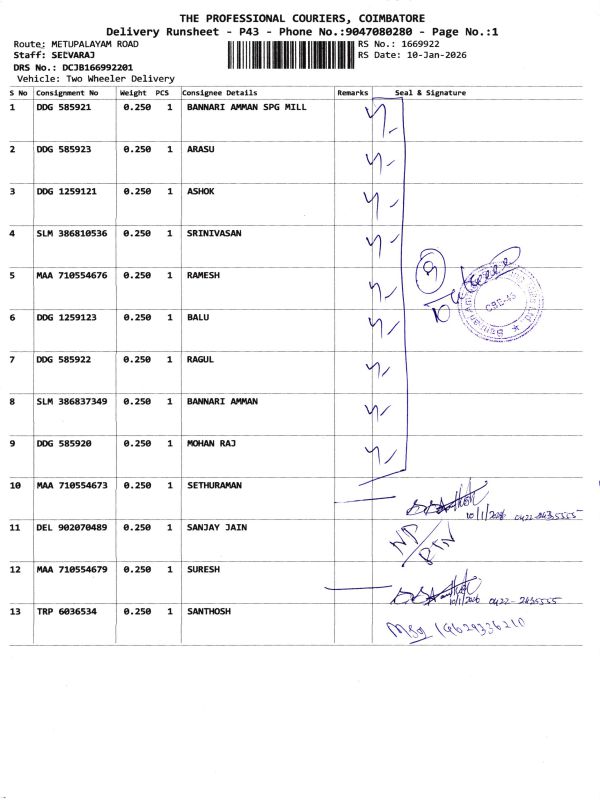 THE PROFESSIONAL COURIERS, COIMBATORE
Delivery Runsheet - P43 - Phone No.:9047080280 - Page No.:1
Route: METUPALAYAM ROAD
RS No.: 1669922
Staff: SELVARAJ
RS Date: 10-Jan-2026
DRS No.: DCJB166992201
Vehicle: Two Wheeler Delivery
S No Consignment No Weight PCS Consignee Details Remarks Seal & Signature
1 DDG 585921 0.250 1 BANNARI AMMAN SPG MILL
2 DDG 585923 0.250 1 ARASU
3 DDG 1259121 0.250 1 ASHOK
4 SLM 386810536 0.250 1 SRINIVASAN
5 MAA 710554676 0.250 1 RAMESH
6 DDG 1259123 0.250 1 BALU
7 DDG 585922 0.250 1 RAGUL
8 SLM 386837349 0.250 1 BANNARI AMMAN
9 DDG 585920 0.250 1 MOHAN RAJ
9
CBE-43
10 MAA 710554673 0.250 1 SETHURAMAN
10/1/2026 0422-2435555
11 DEL 902070489 0.250 1 SANJAY JAIN
NP/RTN
12 MAA 710554679 0.250 1 SURESH
10/1/2026 0422-2435555
13 TRP 6036534 0.250 1 SANTHOSH